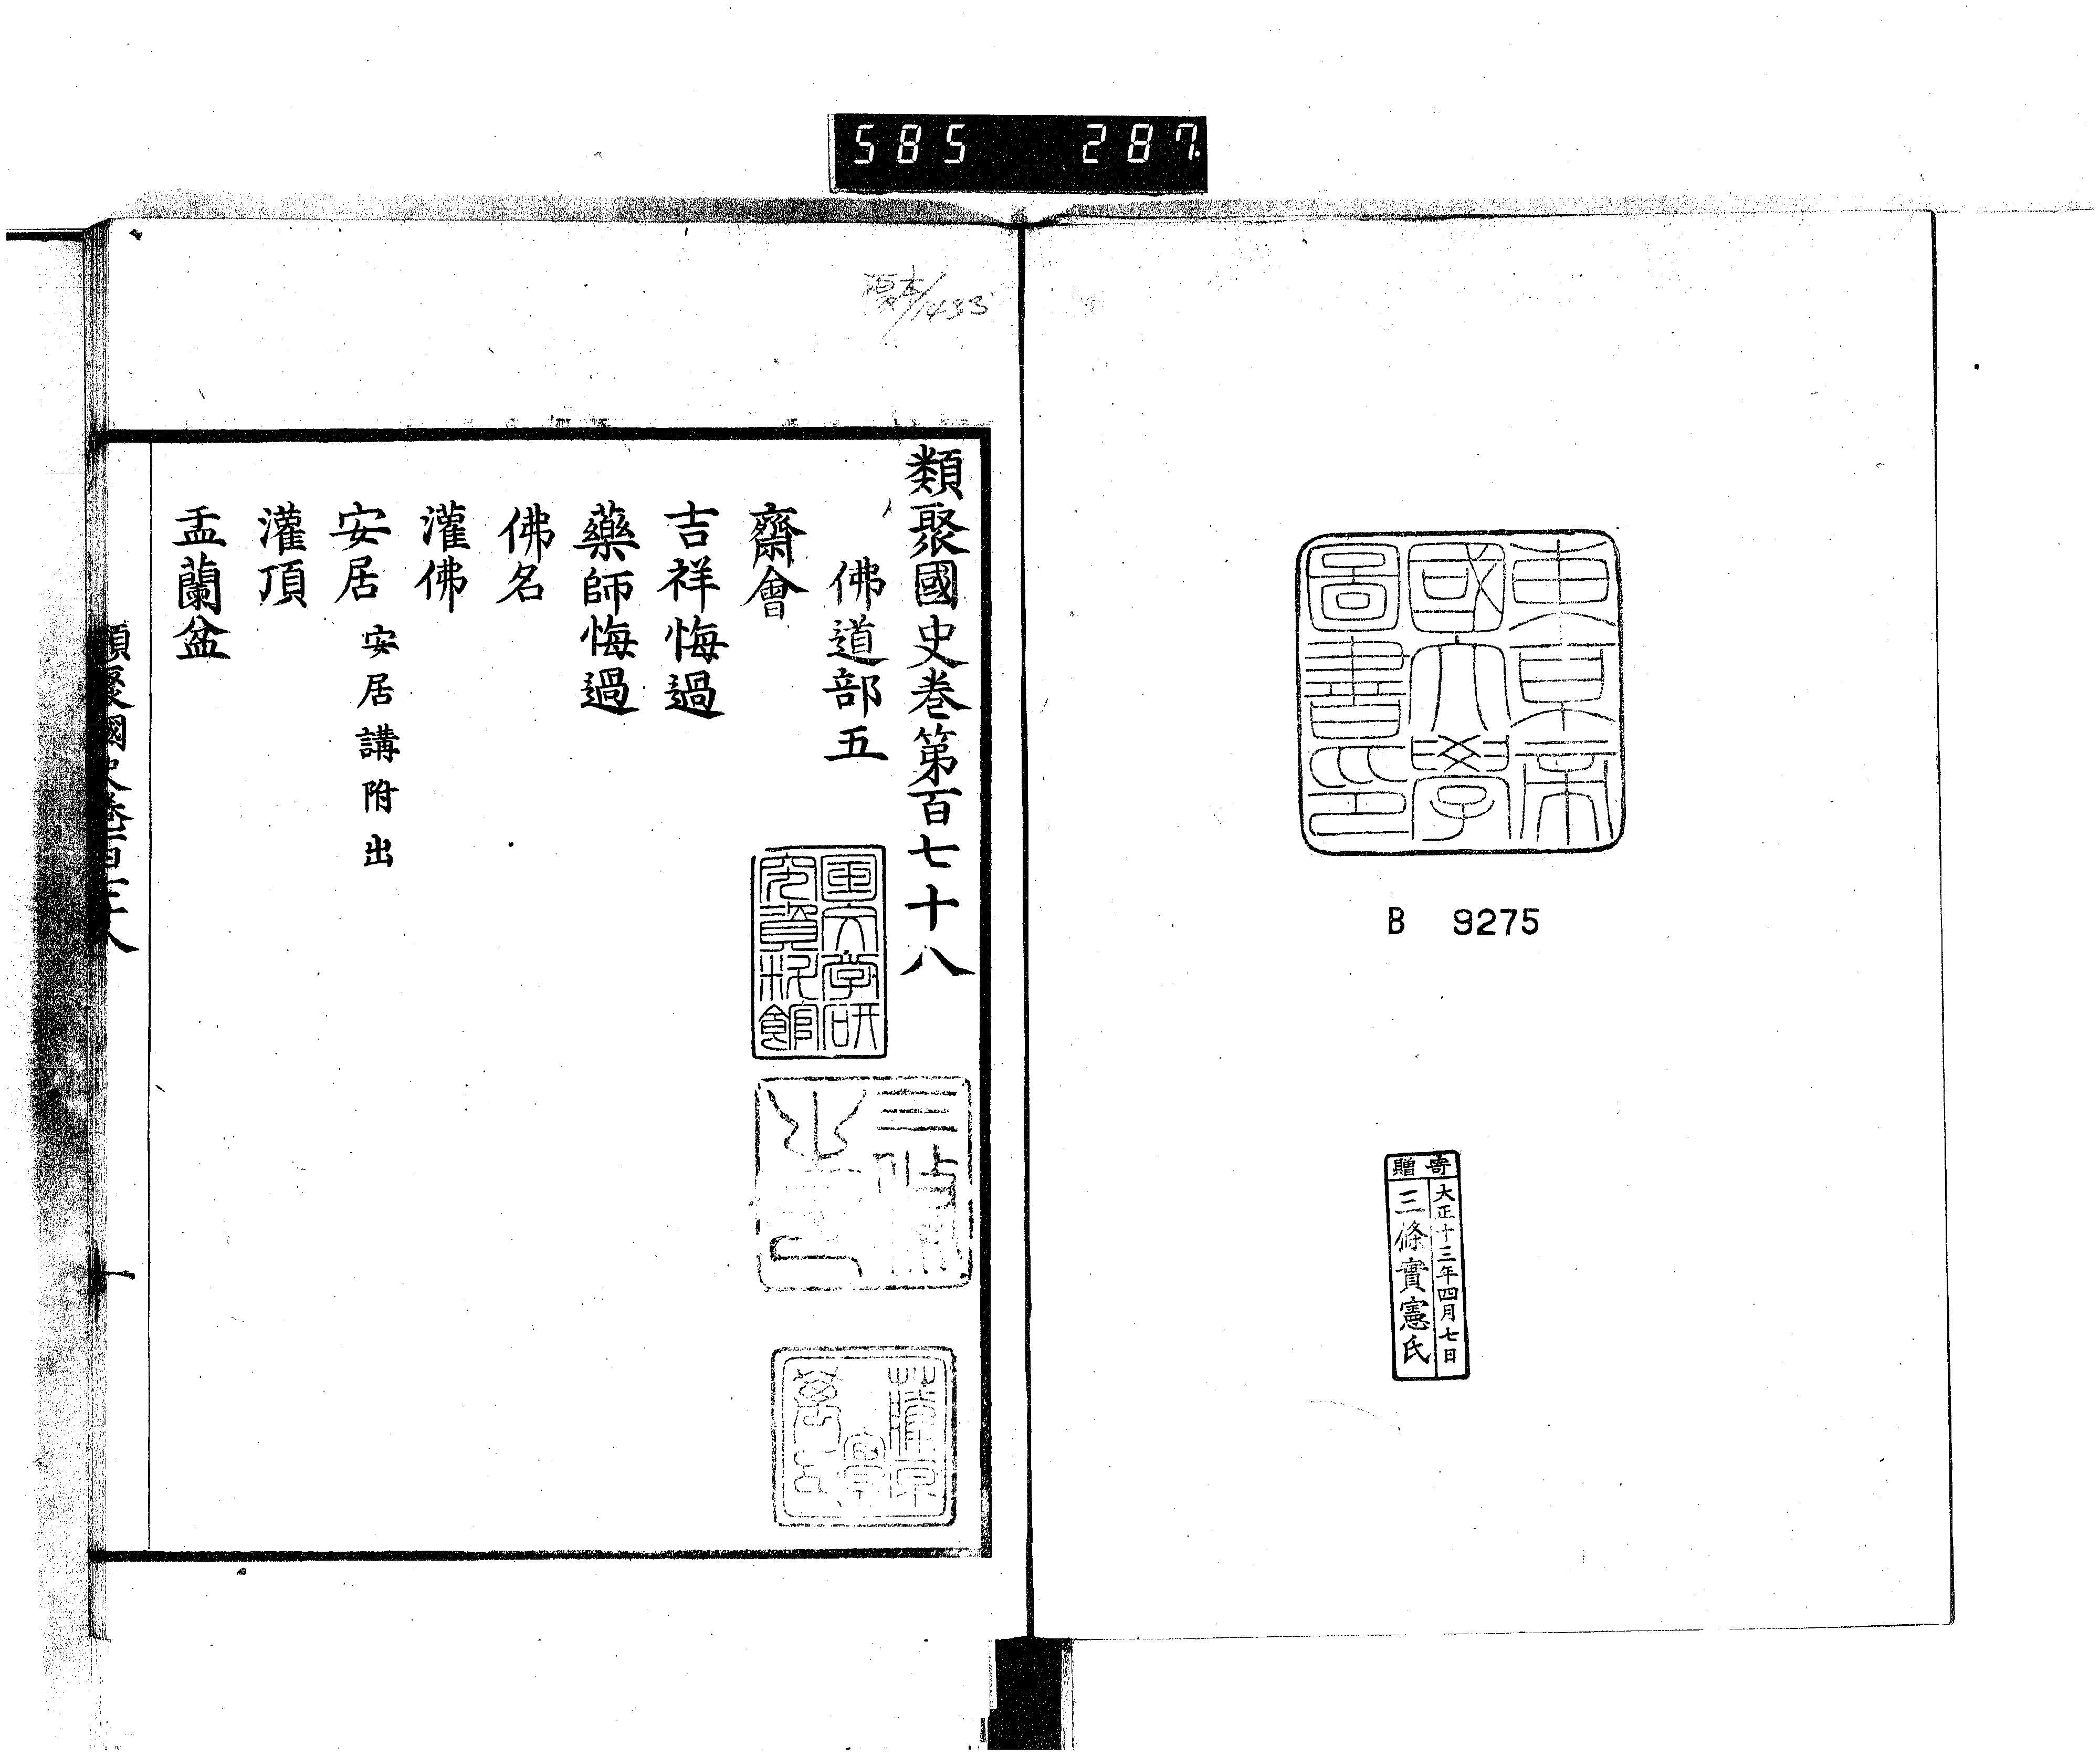 585 287
東京帝
國大學
圖書印
B 9275
寄贈
大正十三年四月七日
三條實憲氏
復本/1433
類聚國史巻第百七十八
佛道部五
齋會
吉祥悔過
藥師悔過
佛名
灌佛
安居 安居講附出
灌頂
盂蘭盆
国文学研
究資料館
類聚國史巻百七十八
一